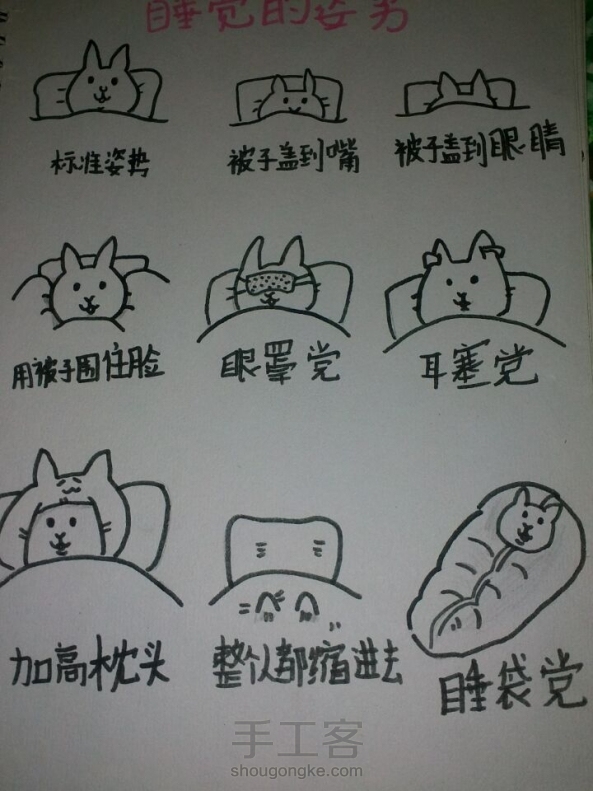 睡觉的姿势
标准姿势
被子盖到嘴
被子盖到眼睛
用被子围住脸
眼罩党
耳塞党
加高枕头
整个都缩进去
睡袋党
手工客
shougongke.com